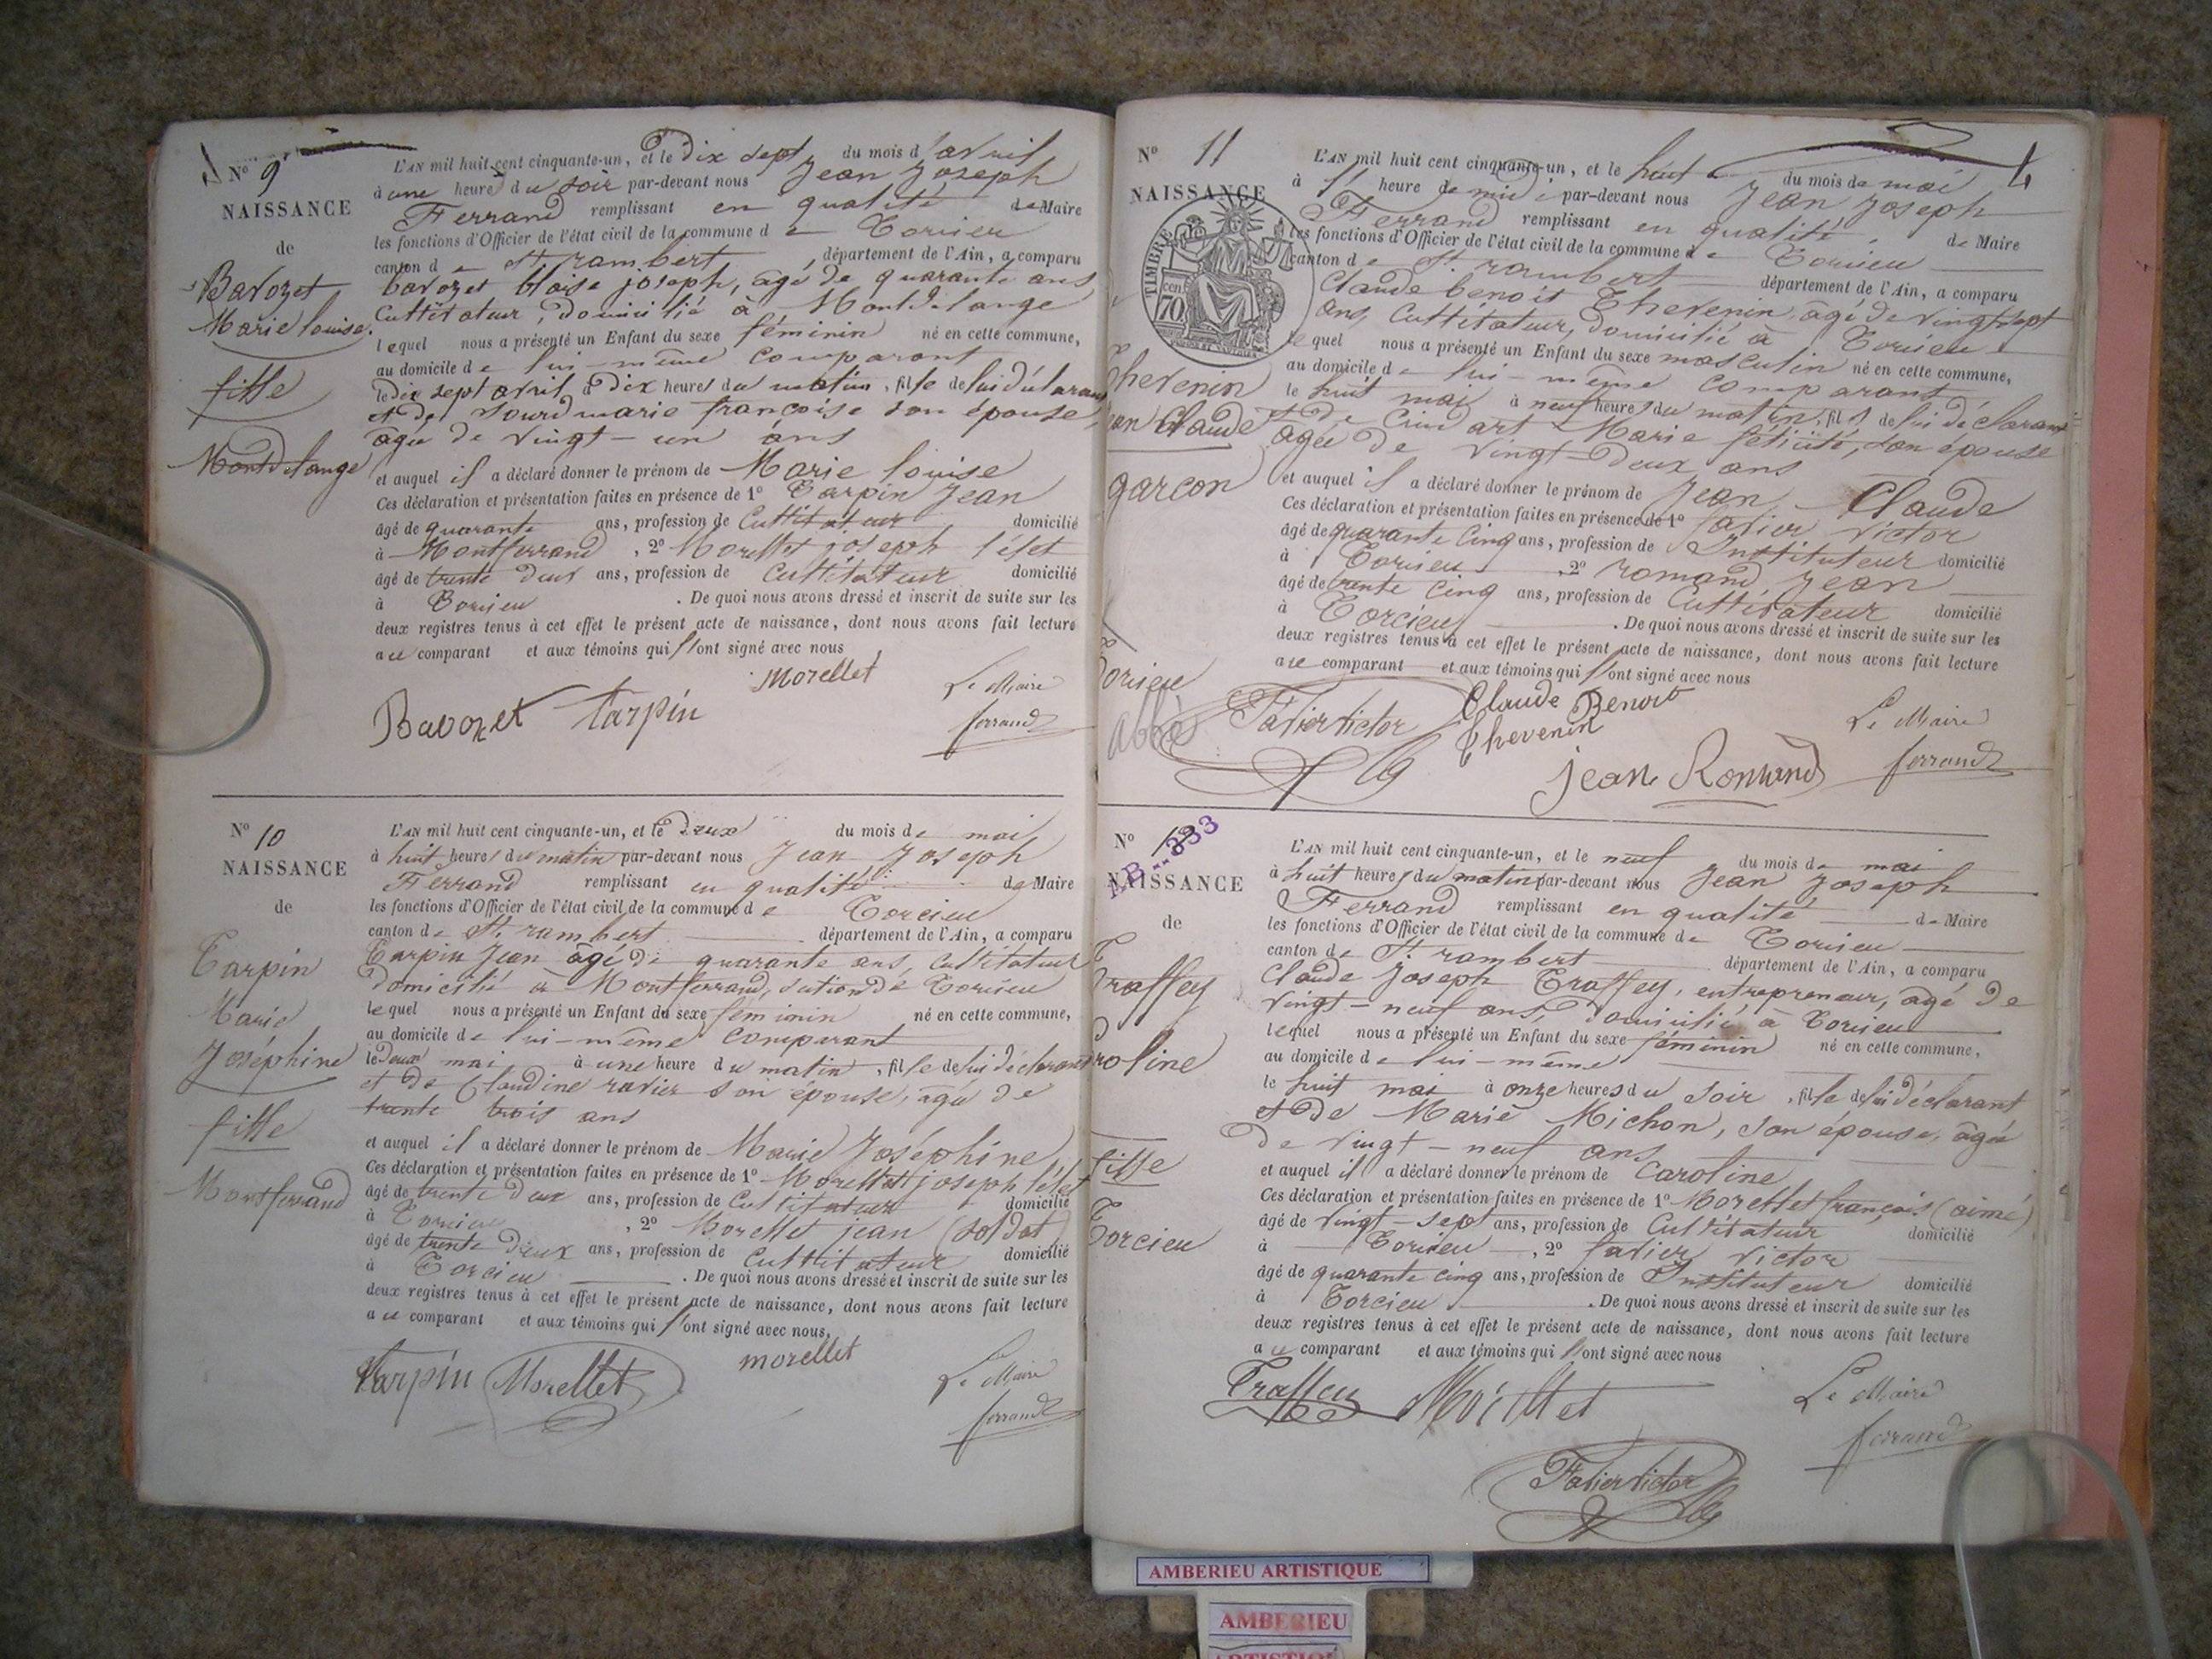 N° 9
NAISSANCE
de
Bavozet
Marie louise.
fille
Montdelange
L'AN mil huit cent cinquante-un, et le Dix sept du mois d'avril
à une heure du soir par-devant nous Jean Joseph
Ferrand remplissant en qualité de Maire
les fonctions d'Officier de l'état civil de la commune de Torcieu
canton de St. rambert, département de l'Ain, a comparu
bavozet blaise joseph, âgé de quarante ans,
Cultivateur, domicilié à Montdelange
lequel nous a présenté un Enfant du sexe féminin né en cette commune,
au domicile de lui même comparant
le dix sept avril à Dix heures du matin, fille de lui déclarant
et de Sourd marie françoise son épouse,
âgée de vingt-un ans
et auquel il a déclaré donner le prénom de Marie louise
Ces déclaration et présentation faites en présence de 1° Tarpin Jean
âgé de quarante ans, profession de Cultivateur domicilié
à Montferrand, 2° Morellet joseph
âgé de trente deux ans, profession de Cultivateur domicilié
à Torcieu. De quoi nous avons dressé et inscrit de suite sur les
deux registres tenus à cet effet le présent acte de naissance, dont nous avons fait lecture
au comparant et aux témoins qui l'ont signé avec nous
Morellet
Le Maire
Bavozet tarpin
ferrand
N° 10
NAISSANCE
de
Tarpin
Marie
Joséphine
fille
Montferrand
L'AN mil huit cent cinquante-un, et le Deux du mois de mai
à huit heures du matin par-devant nous Jean Joseph
Ferrand remplissant en qualité de Maire
les fonctions d'Officier de l'état civil de la commune de Torcieu
canton de St. rambert département de l'Ain, a comparu
Tarpin Jean âgé de quarante ans, cultivateur
domicilié à Montferrand, section de Torcieu
lequel nous a présenté un Enfant du sexe féminin né en cette commune,
au domicile de lui-même comparant
le Deux mai à une heure du matin, fille de lui déclarant
et de Claudine ravier son épouse, âgée de
trente trois ans
et auquel il a déclaré donner le prénom de Marie Joséphine
Ces déclaration et présentation faites en présence de 1° Morellet joseph
âgé de trente deux ans, profession de Cultivateur domicilié
à Torcieu, 2° Morellet jean (soldat)
âgé de trente Deux ans, profession de Cultivateur domicilié
à Torcieu. De quoi nous avons dressé et inscrit de suite sur les
deux registres tenus à cet effet le présent acte de naissance, dont nous avons fait lecture
au comparant et aux témoins qui l'ont signé avec nous,
tarpin Morellet morellet
Le Maire
ferrand
4
N° 11
NAISSANCE
TIMBRE
70 cen
hevenin
ean Claude
garçon
orcieu
abbé
L'AN mil huit cent cinquante-un, et le huit du mois de mai
à 11 heure de midi par-devant nous Jean Joseph
Ferrand remplissant en qualité de Maire
les fonctions d'Officier de l'état civil de la commune de Torcieu
canton de St. rambert département de l'Ain, a comparu
Claude benoit Thevenin, âgé de vingt sept
ans, Cultivateur, domicilié à Torcieu
lequel nous a présenté un Enfant du sexe masculin né en cette commune,
au domicile de lui-même comparant
le huit mai à neuf heures du matin, fils de lui déclarant
et de Marie félicité, son épouse
âgée de vingt-deux ans
et auquel il a déclaré donner le prénom de Jean Claude
Ces déclaration et présentation faites en présence de 1° favier victor
âgé de quarante cinq ans, profession de Instituteur domicilié
à Torcieu, 2° romand Jean
âgé de trente cinq ans, profession de Cultivateur domicilié
à Torcieu. De quoi nous avons dressé et inscrit de suite sur les
deux registres tenus à cet effet le présent acte de naissance, dont nous avons fait lecture
au comparant et aux témoins qui l'ont signé avec nous
Favier victor
Claude Benoit
Thevenin
Le Maire
Jean Romand
ferrand
N° 12
NAISSANCE
de
Traffey
roline
fille
Torcieu
L'AN mil huit cent cinquante-un, et le neuf du mois de mai
à huit heures du matin par-devant nous Jean Joseph
Ferrand remplissant en qualité de Maire
les fonctions d'Officier de l'état civil de la commune de Torcieu
canton de St. rambert département de l'Ain, a comparu
Claude Joseph Traffey, entrepreneur, âgé de
vingt-neuf ans, domicilié à Torcieu
lequel nous a présenté un Enfant du sexe féminin né en cette commune,
au domicile de lui-même
le huit mai à onze heures du soir, fille de lui déclarant
et de Marie Michon, son épouse, âgée
de vingt-neuf ans
et auquel il a déclaré donner le prénom de Caroline
Ces déclaration et présentation faites en présence de 1° Morellet françois (aimé)
âgé de vingt-sept ans, profession de Cultivateur domicilié
à Torcieu, 2° favier victor
âgé de quarante cinq ans, profession de Instituteur domicilié
à Torcieu. De quoi nous avons dressé et inscrit de suite sur les
deux registres tenus à cet effet le présent acte de naissance, dont nous avons fait lecture
au comparant et aux témoins qui l'ont signé avec nous
Traffey Morellet
Le Maire
ferrand
Favier victor
AMBERIEU ARTISTIQUE
AMBERIEU
ARTISTIQUE